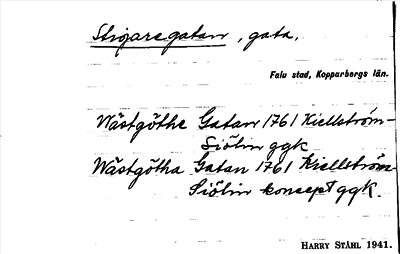 Stigaregatan, gata,
Falu stad, Kopparbergs län.
Wästgöthe Gatan 1761 Kiellström-
Siölin ggk
Wästgötha Gatan 1761 Kiellström
Siölin koncept ggk.
HARRY STÅHL 1941.